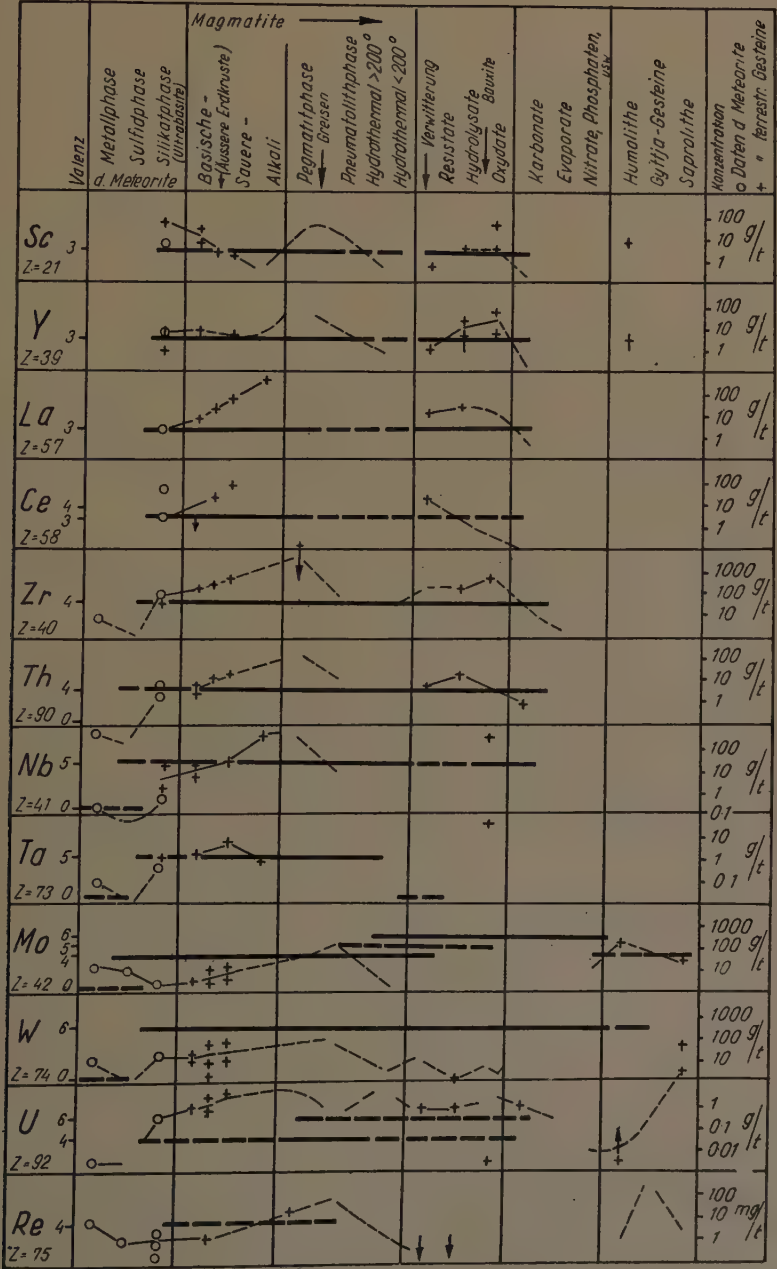 Magmatite
Valenz
Metallphase
Sulfidphase
Silikatphase
(Ultrabasite)
d. Meteorite
Basische -
(Äussere Erdkruste)
Sauere -
Alkali
Pegmatitphase
Greisen
Pneumatolithphase
Hydrothermal >200°
Hydrothermal <200°
Verwitterung
Resistate
Hydrolysate
Bauxite
Oxydate
Karbonate
Evaporate
Nitrate, Phosphaten,
usw
Humolithe
Gyttja-Gesteine
Saprolithe
Konzentration
o Daten d Meteorite
+ " terrestr. Gesteine
Sc 3
Z=21
100
10 g/t
1
Y 3
Z=39
100
10 g/t
1
La 3
Z=57
100
10 g/t
1
Ce 4
3
Z=58
100
10 g/t
1
Zr 4
Z=40
1000
100 g/t
10
Th 4
Z=90 0
100
10 g/t
1
Nb 5
Z=41 0
100
10 g/t
1
0·1
Ta 5
Z=73 0
10
1 g/t
0·1
Mo 6
5
4
Z=42 0
1000
100 g/t
10
W 6
Z=74 0
1000
100 g/t
10
U 6
4
Z=92
1
0·1 g/t
0·01
Re 4
Z=75
100
10 mg/t
1